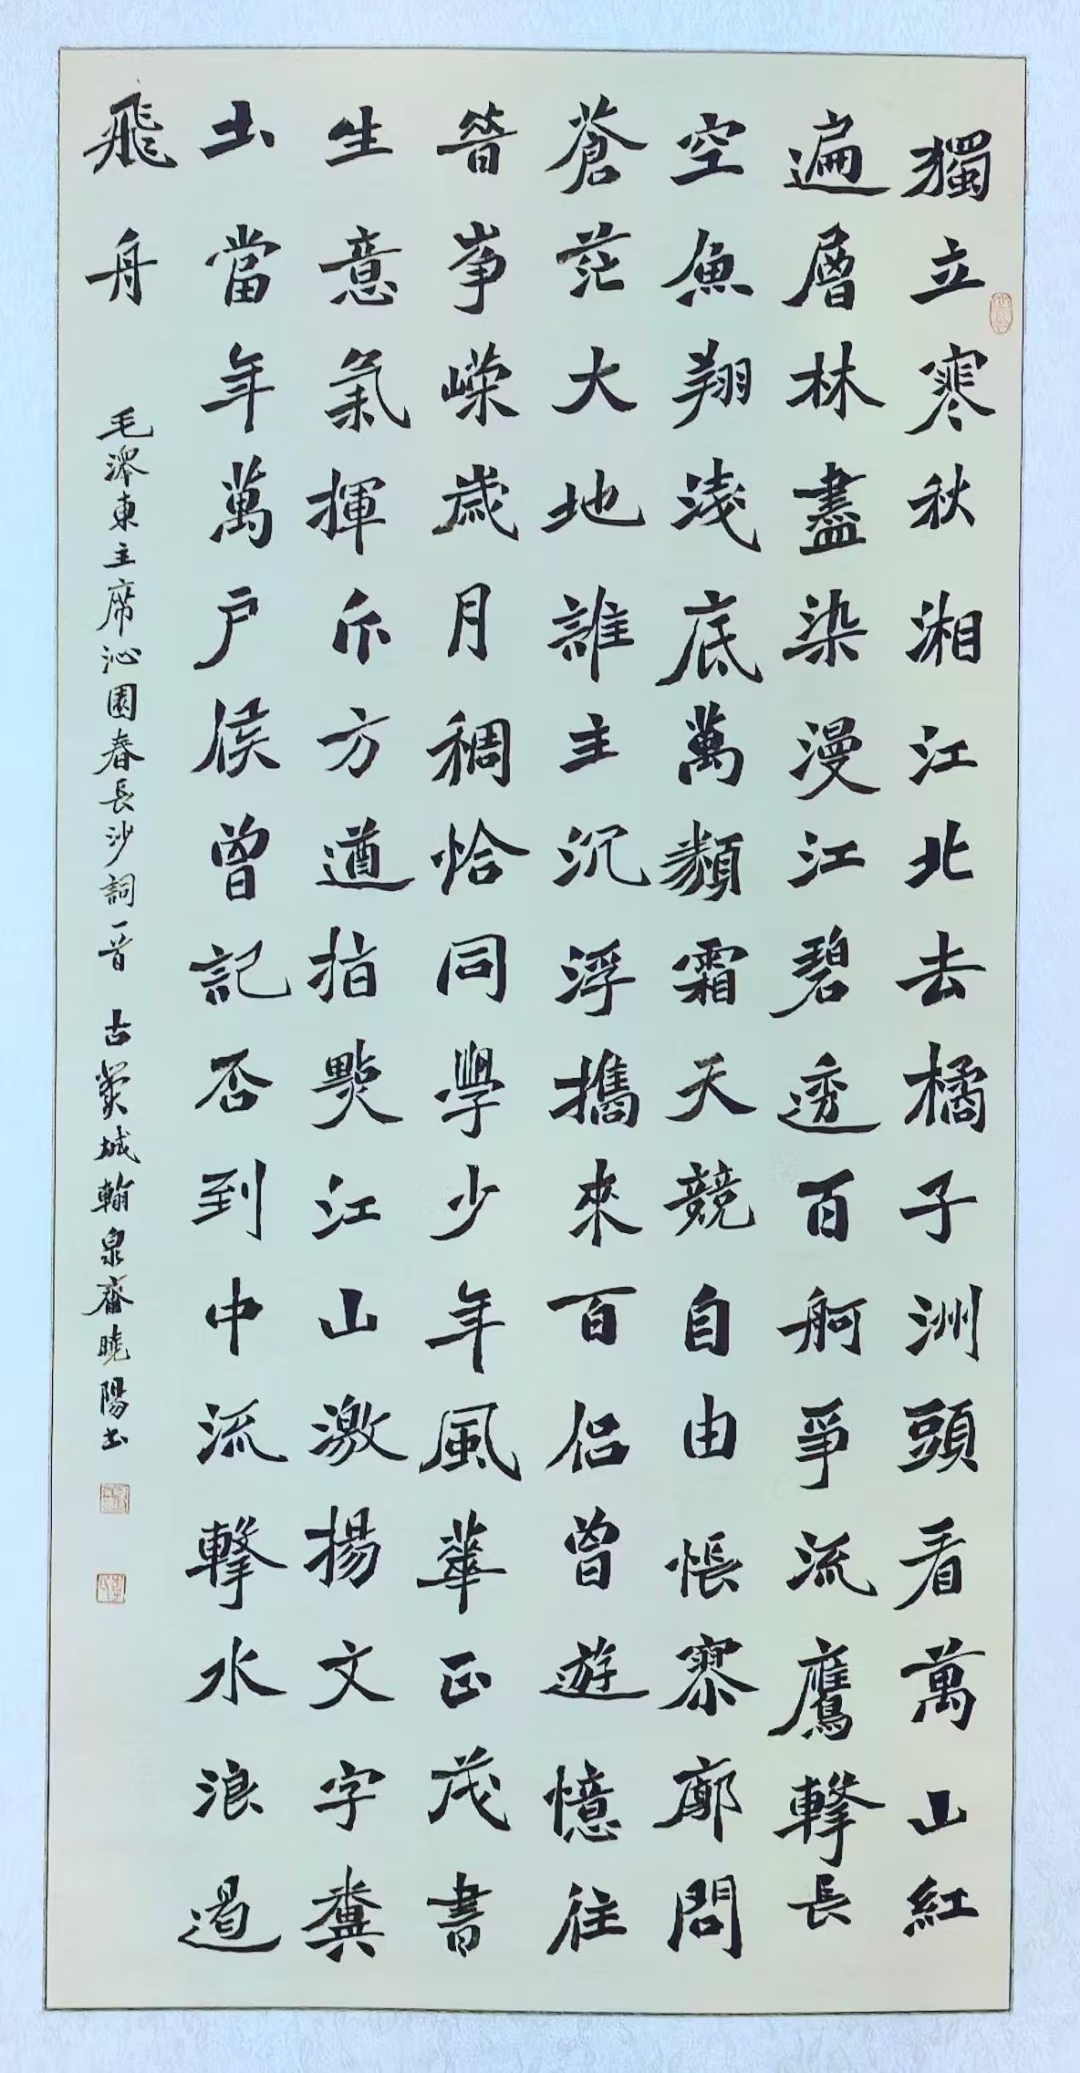 獨立寒秋湘江北去橘子洲頭看萬山紅
遍層林盡染漫江碧透百舸爭流鷹擊長
空魚翔淺底萬類霜天競自由悵寥廓問
蒼茫大地誰主沉浮攜來百侶曾遊憶往
昔崢嶸歲月稠恰同學少年風華正茂書
生意氣揮斥方遒指點江山激揚文字糞
土當年萬户侯曾記否到中流擊水浪遏
飛舟
毛澤東主席沁園春長沙詞一首 古冀城翰泉齋曉陽书